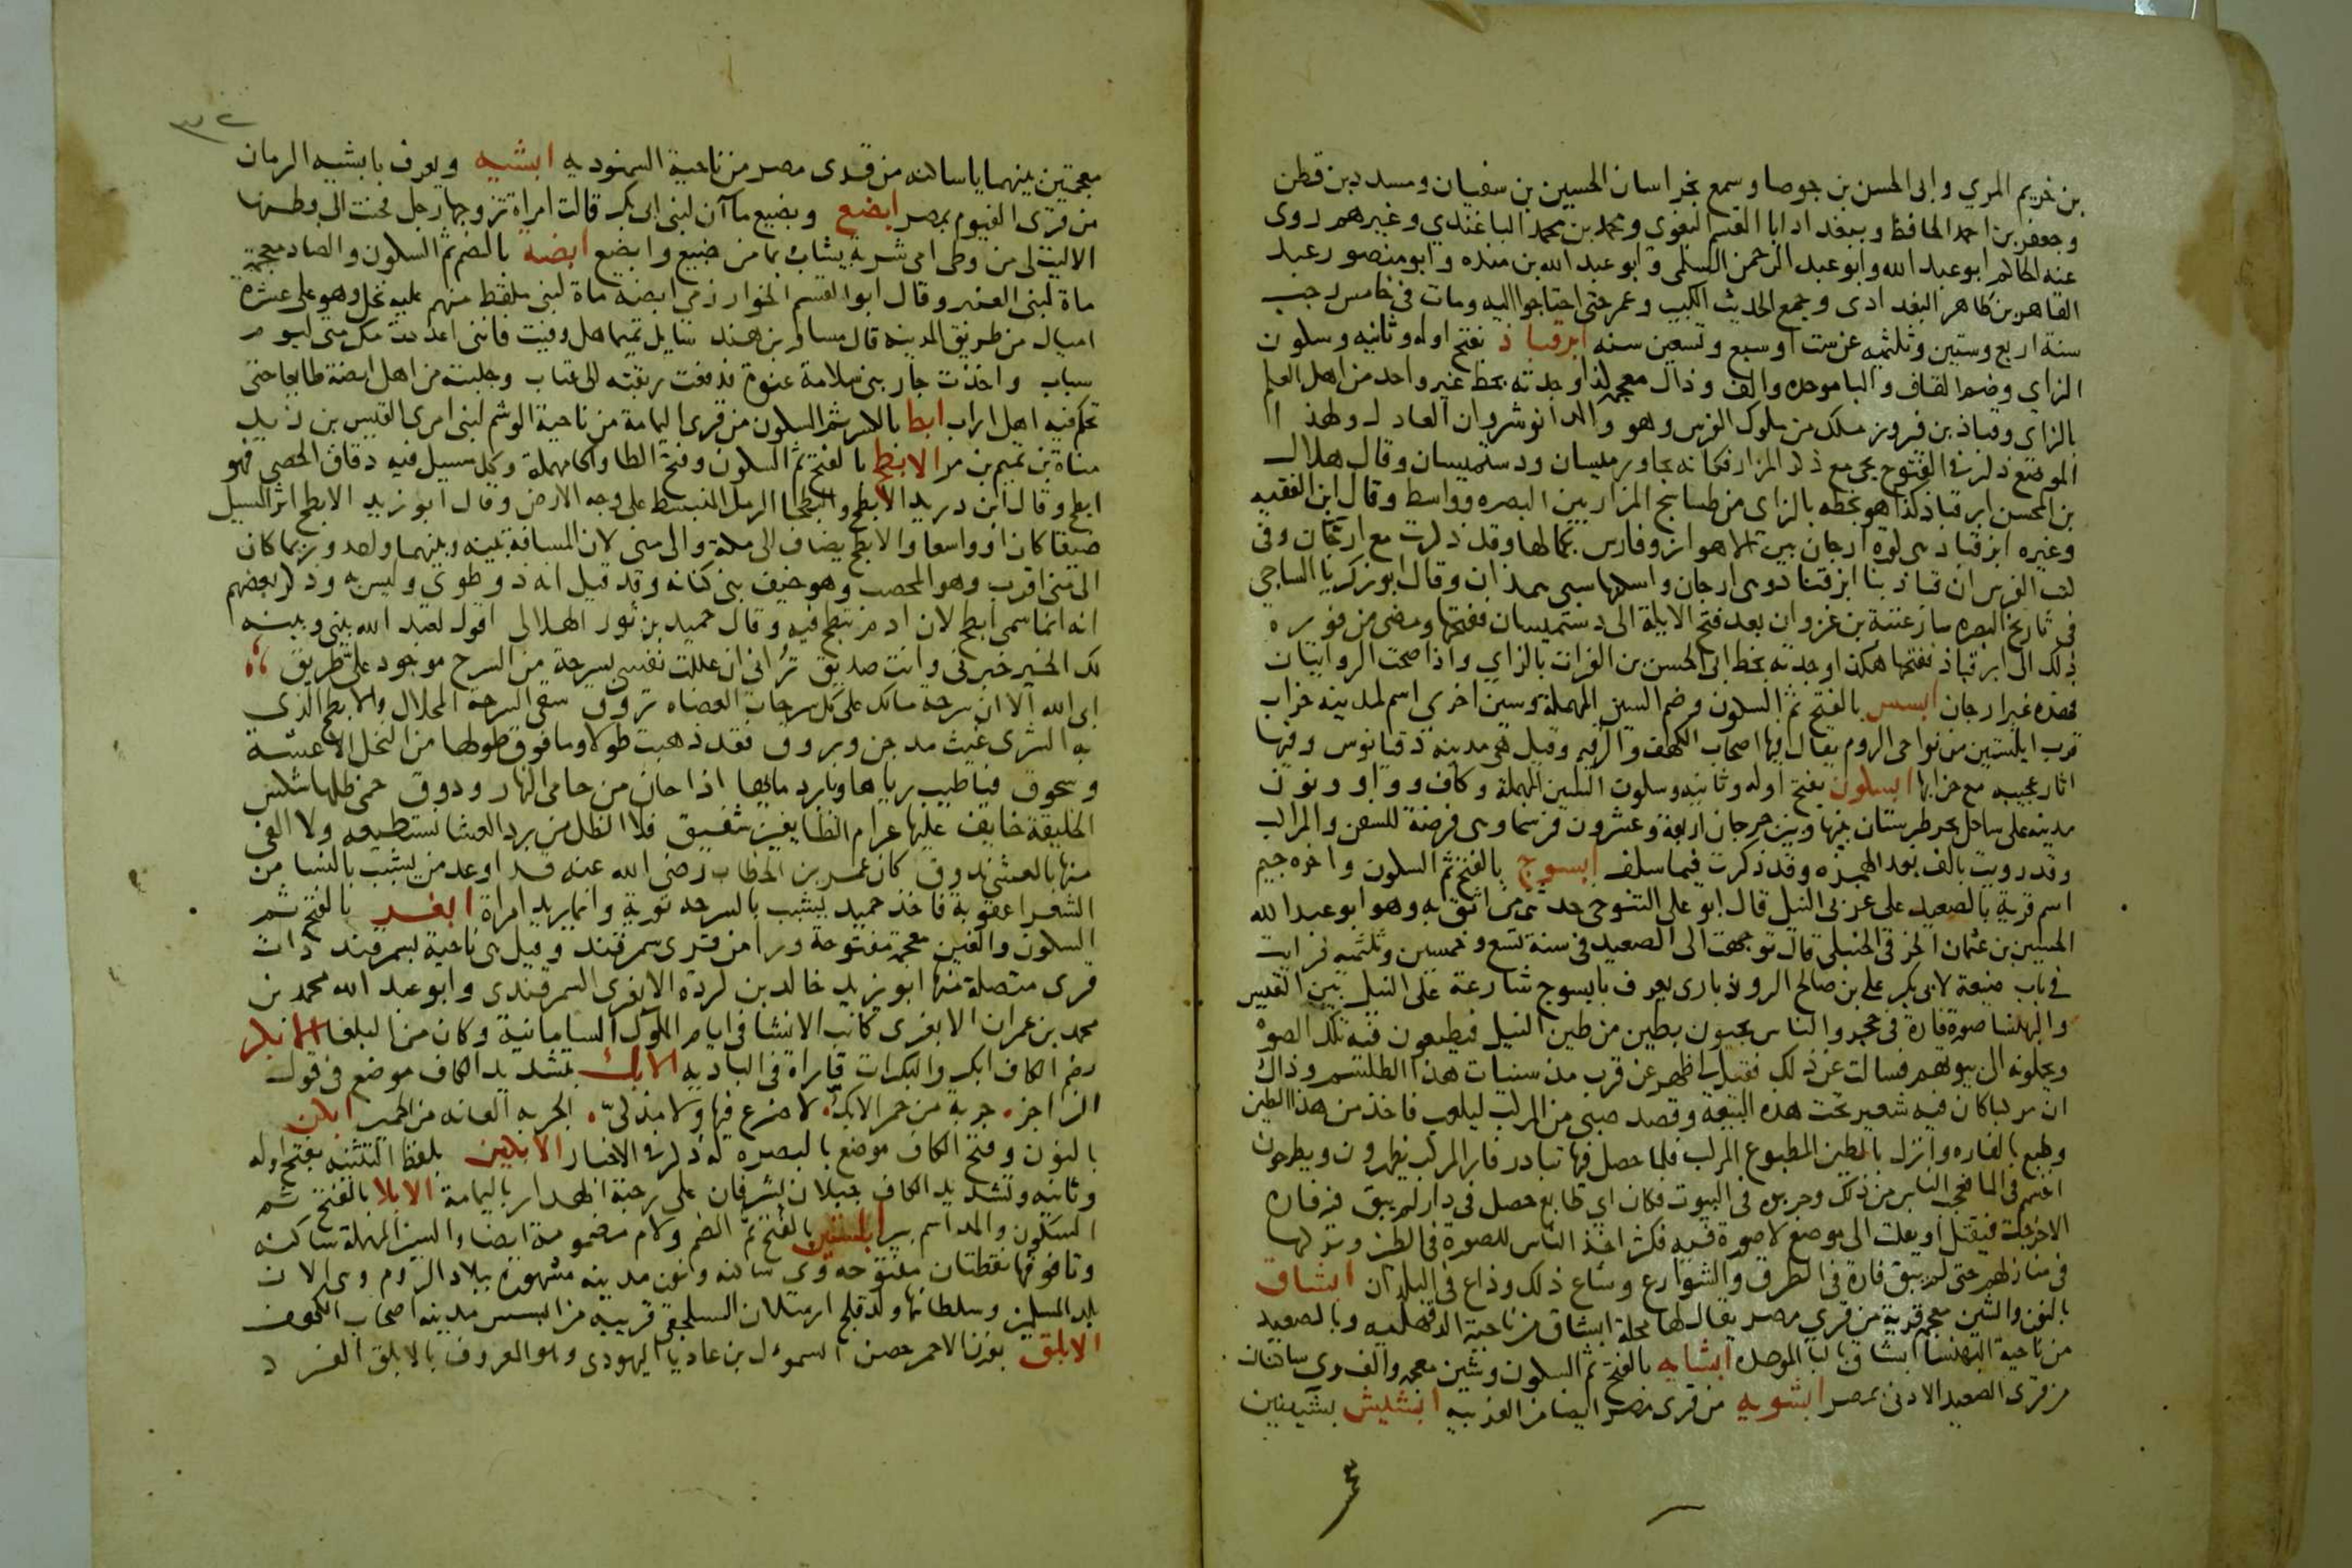 بن خريم المري وابى الحسن بن جوصا وسمع بخراسان الحسين بن سفيان ومسدد بن قطن
وجعفر بن احمد الحافظ وببغداد ابا القسم البغوى ومحمد بن محمد الباغندي وغيرهم روى
عنه الحاكم ابو عبد الله وابو عبد الرحمن السلمى وابو عبد الله بن منده وابو منصور عبد
القاهر بن طاهر البغدادى وجمع الحديث الكبير وعمر حتى احتاجوا اليه ومات فى خامس رجب
سنة اربع وستين وثلثمه عن ست او سبع وتسعين سنه ابزقباذ بفتح اوله وثانيه وسكون
الزاي وضم القاف والبا موحده والف وذال معجمه كذا وجدته بخط غير واحد من اهل العلم
بالزاى وقباذ بن فيروز ملك من ملوك الفرس وهو والد انوشروان العادل وهذا
الموضع ذكر فى الفتوح يجى مع ذكر المزار فكانه يجاور ميسان ودستميسان وقال هلال
بن المحسن ابزقباذ كذا هو بخطه بالزاى من طساسيج المزار بين البصره وواسط وقال ابن الفقيه
وغيره ابزقباذ هى كوره ارجان بين الاهواز وفارس بكمالها وقد ذكرت مع ارجان وفى
كتب الفرس ان قباذ بنا ابزقباذ وهى ارجان واسكنها سبى همذان وقال ابو زكريا الساجي
فى تاريخ البصره سار عتبة بن غزوان بعد فتح الابلة الى دستميسان ففتحها ومضى من فوره
ذلك الى ابزقباذ ففتحها هكذا وجدته بخط ابى الحسن بن الفرات بالزاي واذا صحت الروايتان
فهذه غير ارجان ابسس بالفتح ثم السكون وضم السين المهملة وسين اخري اسم لمدينه خراب
قرب ابلستين من نواحى الروم يقال منها اصحاب الكهف والرقيم وقيل هى مدينه دقيانوس وفيها
اثار عجيبه مع خرابها ابسكون بفتح اوله وثانيه وسكون السين المهملة وكاف وواو ونون
مدينه على ساحل بحر طبرستان بينها وبين جرجان اربعة وعشرون فرسخا وهى فرضة للسفن والمراكب
وقد رويت بالف بعد الهمزه وقد ذكرت فيما سلف ابسوج بالفتح ثم السكون واخره جيم
اسم قرية بالصعيد على غربى النيل قال ابو على التنوخى حدثنى من اثق به وهو ابو عبد الله
الحسين بن عثمان الخرقى الحنبلى قال توجهت الى الصعيد فى سنة تسع وخمسين وثلثميه فرايت
فى باب ضيعة لابى بكر على بن صالح الروذبارى يعرف بابسوج شارعة على النيل بين القيس
والبهنسا صورة فارة فى حجر والناس يجيون بطين من طين النيل فيطبعون فيه تلك الصورة
ويحملونه الى بيوتهم فسالت عن ذلك فقيل لى ظهر عن قرب مذ سنيات هذا الطلسم وذاك
ان مركبا كان فيه شعير تحت هذه البيعة وقصد صبى من المركب ليلعب فاخذ من هذا الطين
وطبع بالفاره ونزل بالطين المطبوع المركب فلما حصل فيها تبادر فار المركب يظهرون ويطرحون
انفسهم فى الما فعجب الناس من ذلك وجربوه فى البيوت فكان اي طابع حصل فى دار لم يبق فيه فاره
الا خرجت فيقتل او يفلت الى موضع لا صورة فيه فكثر اخذ الناس للصورة فى الطين وتركها
فى منازلهم حتى لم يبق فارة فى الطرق والشوارع وشاع ذلك وذاع فى البلدان ابشاق
بالفتح والشين معجمه قرية من قري مصر يقال لها محلة ابشاق من ناحية الدقهلميه وبالصعيد
من ناحية البهنسا ابشاق بالبا الموحده ابشايه بالفتح ثم السكون وشين معجمه والف وى ساكنان
من قرى الصعيد الادنى بمصر ابشويه من قرى مصر ايضا من الغربيه ابشيش بشينين
معجمتين بينهما يا ساكنه من قرى مصر من ناحية السمنوديه ابشيه ويعرف بابشيه الرمان
من قرى الفيوم بمصر ابضع وبضيع ماآن لبنى ابى بكر قالت امراة تزوجها رجل فحنت الى وطنها
الا ليت لى من وطى امى شربة يشاب بما من ضبيع وابضع ابضة بالضم ثم السكون والضاد معجمة
ماة لبنى العنبر وقال ابو القسم الخوارزمى ابضه ماة لبنى ملقط منهم عليه نخل وهو على عشرة
اميال من طريق المدينه قال مساور بن هند سايل تميما هل وفيت فاننى اعددت مكرمتى ليوم
سباب واخذت جار بنى سلامة عنوة فدفعت ربقته الى عتاب وجلبته من اهل ابضة طايعا حتى
تحكم فيه اهل اراب ابط بالكسر ثم السكون من قرى اليمامة من ناحية الوشم لبنى امرى القيس بن زيد
مناة بن تميم بن مر الابطح بالفتح ثم السكون وفتح الطا والحا مهملة وكل مسيل فيه دقاق الحصى فهو
ابطح وقال ابن دريد الابطح والبطحا الرمل المنبسط على وجه الارض وقال ابو زيد الابطح اثر المسيل
ضيقا كان او واسعا والابطح يضاف الى مكة والى منى لان المسافة بينه وبينهما واحد وربما كان
الى منى اقرب وهو المحصب وهو خيف بنى كنانه وقد قيل انه ذو طوى وليس به وذكر بعضهم
انه انما سمى ابطح لان ادم بطح فيه وقال حميد بن ثور الهلالى اقول لعبد الله بينى وبينه
لك الخير خبرنى وانت صديق تراني ان عللت نفسى بسرحة من السرح موجود على طريق
ابى الله الا ان سرحة مالك على كل سرحات العضاه تروق سقى السرحة المحلال والابطح الذى
به الشرى غيث مدجن وبروق فقد ذهبت طولا وما فوق طولها من النخل الا عشة
وسحوق فيا طيب رياها وبارد مائها اذا حان من حامى النهار ودوق حمى ظلها شكس
الخليقة خايف عليها عرام الطايفين شفيق فلا الظل من برد العشا نستطيعه ولا الفى
منها بالعشى ندوق كان عمر بن الخطاب رضى الله عنه قد اوعد من يشبب بالنسا من
الشعرا عقوبة فاخذ حميد يشبب بالسرحه تورية وانما يريد امراة ابغر بالفتح ثم
السكون والغين معجمة مفتوحة ورا من قرى سمرقند وقيل هى ناحية بسمرقند ذات
قرى متصلة منها ابو يزيد خالد بن كردة الابغرى السمرقندى وابو عبد الله محمد بن
محمد بن عمران الابغرى كاتب الانشا فى ايام الملوك السامانية وكان من البلغا الابكر
بضم الكاف ابكر والبكرات قارات فى الباديه الابك بتشديد الكاف موضع فى قول
الراجز جربة من حمر الابك لا ضرع فيها ولا مذكى الجربه العانه من الحمير ابكن
بالنون وفتح الكاف موضع بالبصره له ذكر فى الاخبار الابكين بلفظ التثنيه بفتح اوله
وثانيه وتشديد الكاف جبلان يشرفان على رحبة الهدار باليمامة الابلا بالفتح ثم
السكون والمد اسم بير ابلستين بالفتح ثم الضم ولام مضمومة ايضا والسين المهملة ساكنه
وتا فوقها نقطتان مفتوحه وى ساكنه ونون مدينه مشهوره ببلاد الروم وهى الان
بلد المسلمين وسلطانها ولد قلج ارسلان السلجقى قريبه من ابسس مدينه اصحاب الكهف
الابلق بوزن الاحمر حصن السموءل بن عاديا اليهودى وهو المعروف بالابلق الفرد